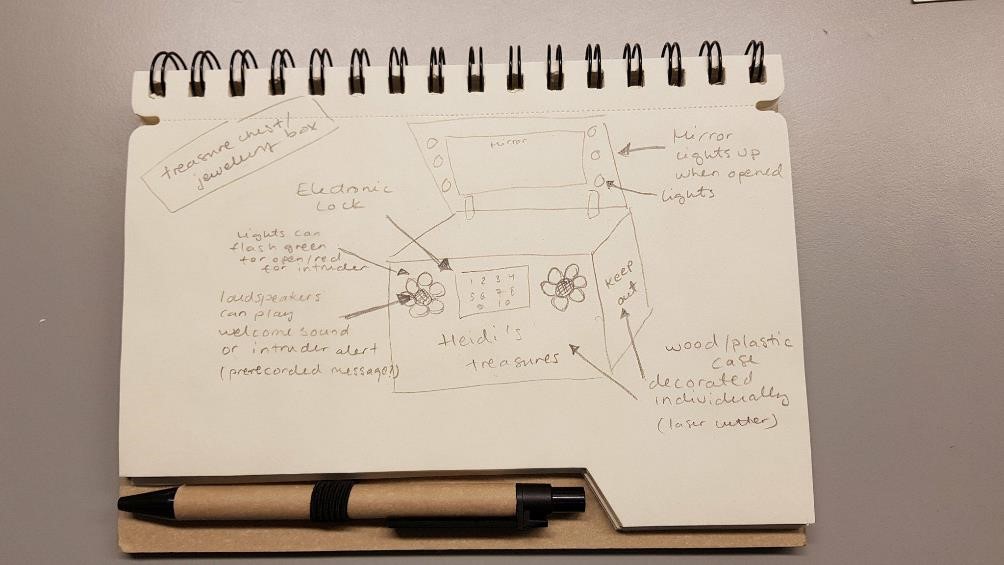 treasure chest/
jewellery box
Mirror
Mirror
lights up
when opened
lights
Electronic
Lock
Lights can
flash green
for open/red
for intruder
1 2 3 4
5 6 7 8
9 10
loudspeakers
can play
welcome sound
or intruder alert
(prerecorded message?)
Heidi's
treasures
Keep
out
wood/plastic
case
decorated
individually
(laser cutter)